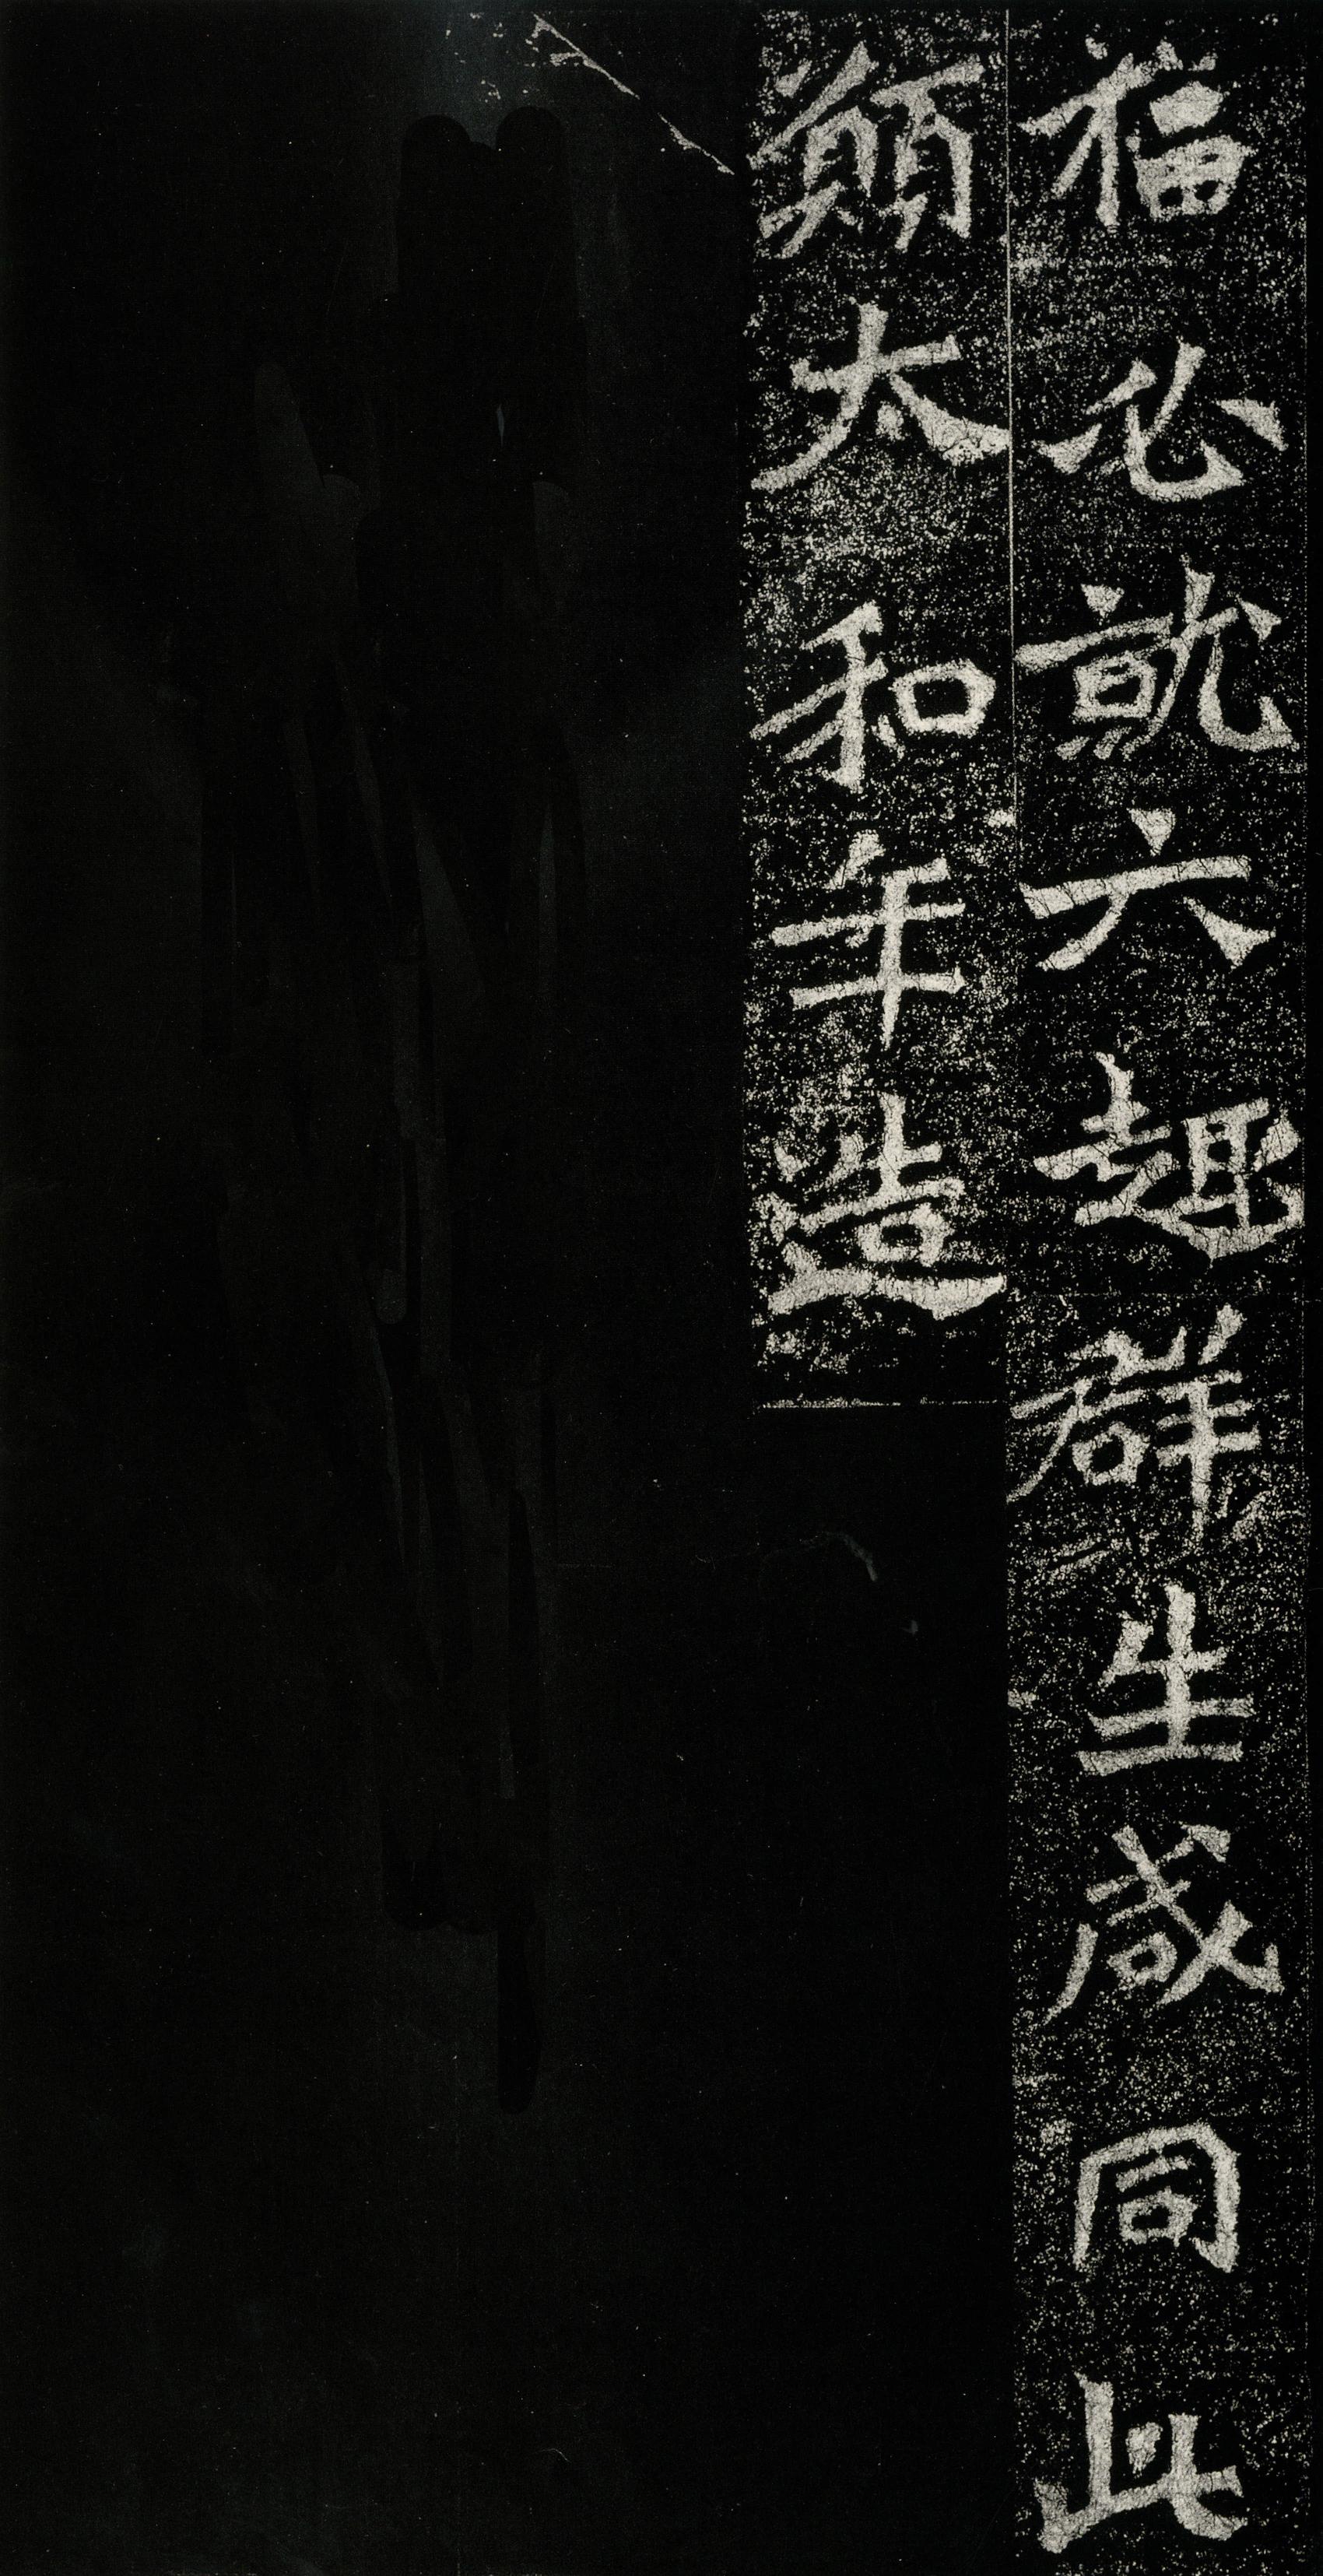 福必就六趣群生咸同此
願太和年造